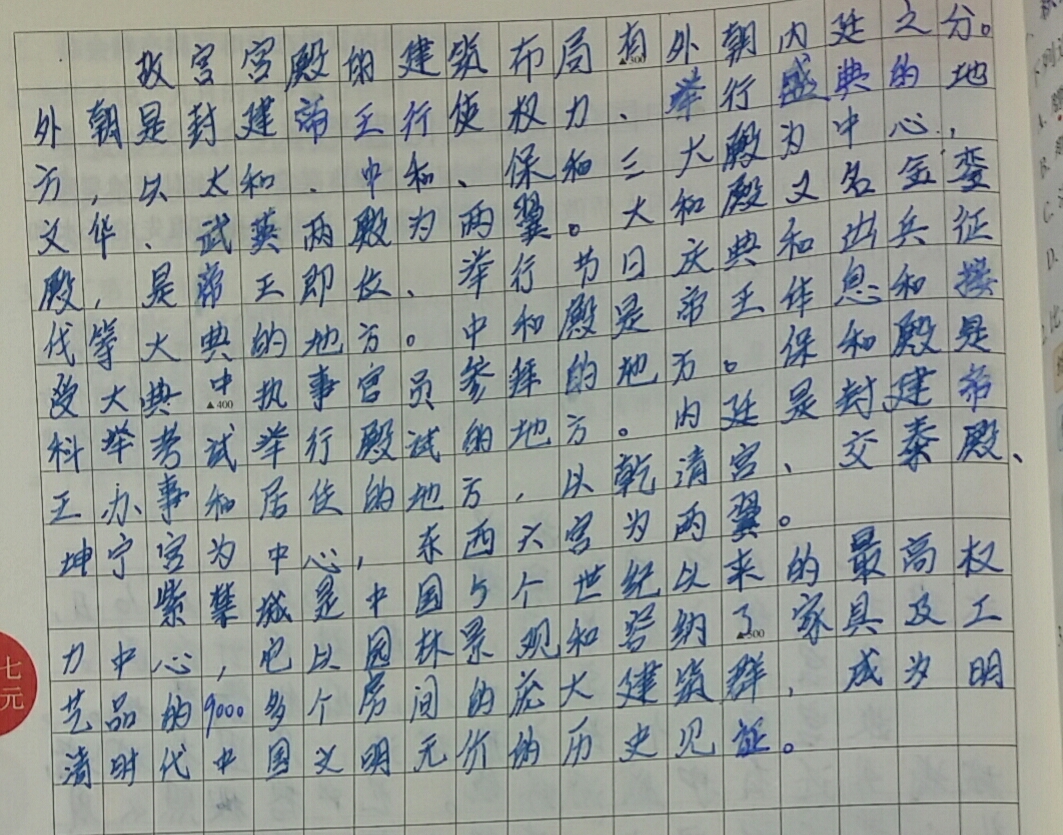 故宫宫殿的建筑布局有外朝内廷之分。
外朝是封建帝王行使权力、举行盛典的地
方，以太和、中和、保和三大殿为中心，
文华、武英两殿为两翼。太和殿又名金銮
殿，是帝王即位、举行节日庆典和出兵征
伐等大典的地方。中和殿是帝王休息和接
受大典中执事官员参拜的地方。保和殿是
▲400
科举考试举行殿试的地方。内廷是封建帝
王办事和居住的地方，以乾清宫、交泰殿、
坤宁宫为中心，东西六宫为两翼。
紫禁城是中国5个世纪以来的最高权
力中心，它以园林景观和容纳了家具及工
▲500
艺品的9000多个房间的庞大建筑群，成为明
清时代中国文明无价的历史见证。
七
元